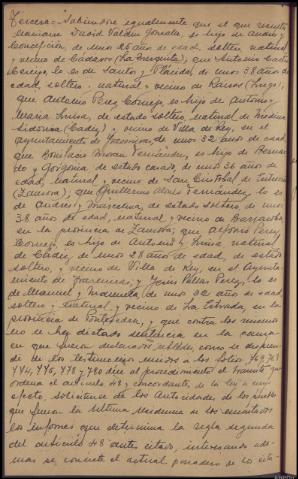 Tercera = Sabiendose igualmente que el que resulta
Mariano David Valdés González, es hijo de Amalio y
Concepción, de unos 26 años de edad, soltero, natural
y vecino de Cadavos (La Mezquita), que Antonio Castro
lo es de Santos y Plácida, de unos 38 años de
edad, soltero, natural y vecino de Ramos (Lugo);
que Antonio Pérez Cornejo, es hijo de Antonio y
María Luisa, de estado soltero, natural de Medina
Sidonia (Cadiz) y vecino de Villa de Rey, en el
Ayuntamiento de de unos 32 años de edad,
que Bonifacio Morán Fernández, es hijo de Bernardo
y Gorgonia, de estado casado, de unos 36 años de
edad, natural y vecino de San Cristobal de Entreviñas
(Zamora), que Guillermo Alonso Fernández, lo es
de Andrés y Marcelina, de estado soltero, de unos
38 años de edad, natural y vecino de
en la provincia de Zamora; que Alfonso Pérez
Cornejo, es hijo de Antonio y Luisa, natural
de Cadiz, de unos 28 años de edad, de estado
soltero, y vecino de Villa de Rey, en el Ayunta-
miento de y Jesús Pérez, lo es
de Manuel y Manuela, de unos 32 años de edad,
soltero, natural y vecino de La Estrada, en la
provincia de Pontevedra, y que contra los mismos
no se ha dictado sentencia en la causa
en que fueron declarados rebeldes, como se despren-
de de los testimonios unidos a los folios 769, 768
774, 775, 778 y 780 dice el procedimiento el trámite que
ordena el artículo 48 y concordantes de la Ley a cuyo
efecto, solicítense de las Autoridades de los pueblos
que fueron la última residencia de los encartados
los informes que determina la regla segunda
del artículo 48 antes citado, interesando ade-
mas se concrete el actual paradero de los cita-